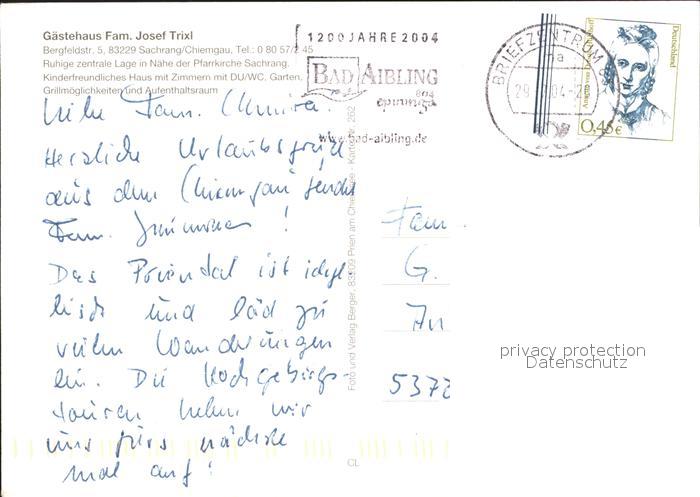 Gästehaus Fam. Josef Trixl
Bergfeldstr. 5, 83229 Sachrang/Chiemgau, Tel.: 0 80 57/2 45
Ruhige zentrale Lage in Nähe der Pfarrkirche Sachrang.
Kinderfreundliches Haus mit Zimmern mit DU/WC, Garten,
Grillmöglichkeiten und Aufenthaltsraum
1200 JAHRE 2004
BAD AIBLING
www.bad-aibling.de
BRIEFZENTRUM
29
04
Deutschland
0,45 €
Liebe Fam.
Herzliche Urlaubsgrüße
aus dem Chiemgau sendet
Fam. !
Das Priental ist idyl
lisch und läd zu
vielen Wanderungen
ein. Die Hochgebirgs-
touren heben wir
uns fürs nächste
mal auf!
Fam
G.
An
5372
Foto und Verlag Berger, 83209 Prien am Chiemsee - Karten-Nr. 262
CL
privacy protection
Datenschutz